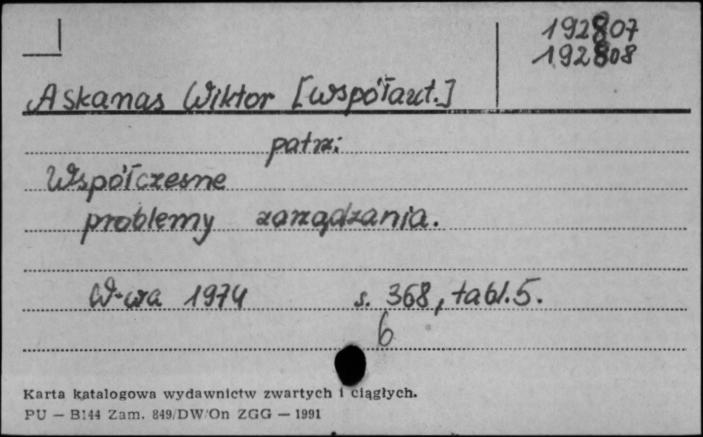 192807
192808
Askanas Wiktor [współaut.]
patrz:
Współczesne
problemy zarządzania.
W-wa 1974 s. 368, tabl. 5.
6
Karta katalogowa wydawnictw zwartych i ciągłych.
PU — B144 Zam. 849/DW/On ZGG — 1991